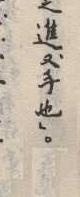 之進又手也」。